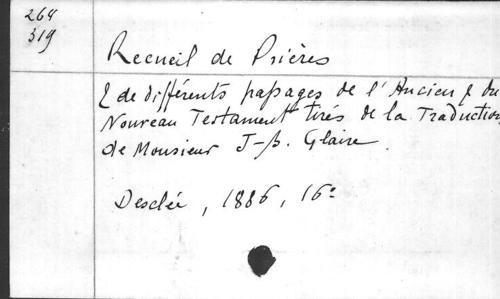 264
319
Recueil de Prières
& de différents passages de l'Ancien & du
Nouveau Testament tirés de la Traduction
de Monsieur J-B. Glaire.
Desclée, 1886, 16°